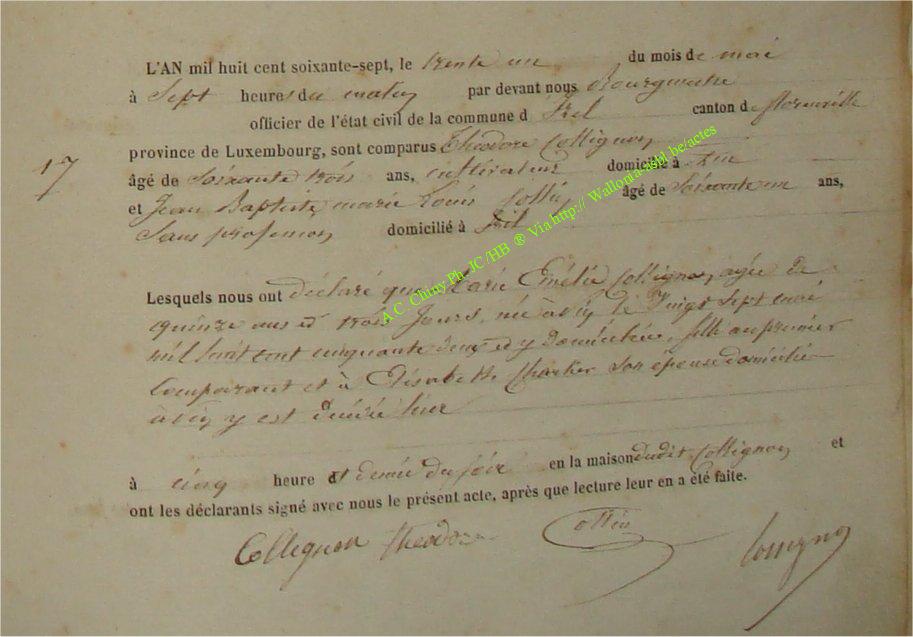 L'AN mil huit cent soixante-sept, le trente un du mois de mai
à Sept heures du matin par devant nous Bourgmestre
officier de l'état civil de la commune d canton de florenville
province de Luxembourg, sont comparus Théodore Collignon
17
âgé de Soixante trois ans, cultivateur domicilié à
et Jean Baptiste marie Louis âgé de Soixante un ans,
Sans profession domicilié à
A C Chiny Ph JC/HB ® Via http:// Wallonia-asbl.be/actes
Lesquels nous ont déclaré que Marie Emélie Collignon, agée de
quinze ans et trois Jours, née à le Vingt Sept mai
mil huit cent cinquante deux et y domiciliée, fille au premier
Comparant et à Elisabeth Charlier Son épouse domiciliée
à y est décédée hier
à cinq heure et demie du soir en la maison dudit Collignon et
ont les déclarants signé avec nous le présent acte, après que lecture leur en a été faite.
Collignon Theodore